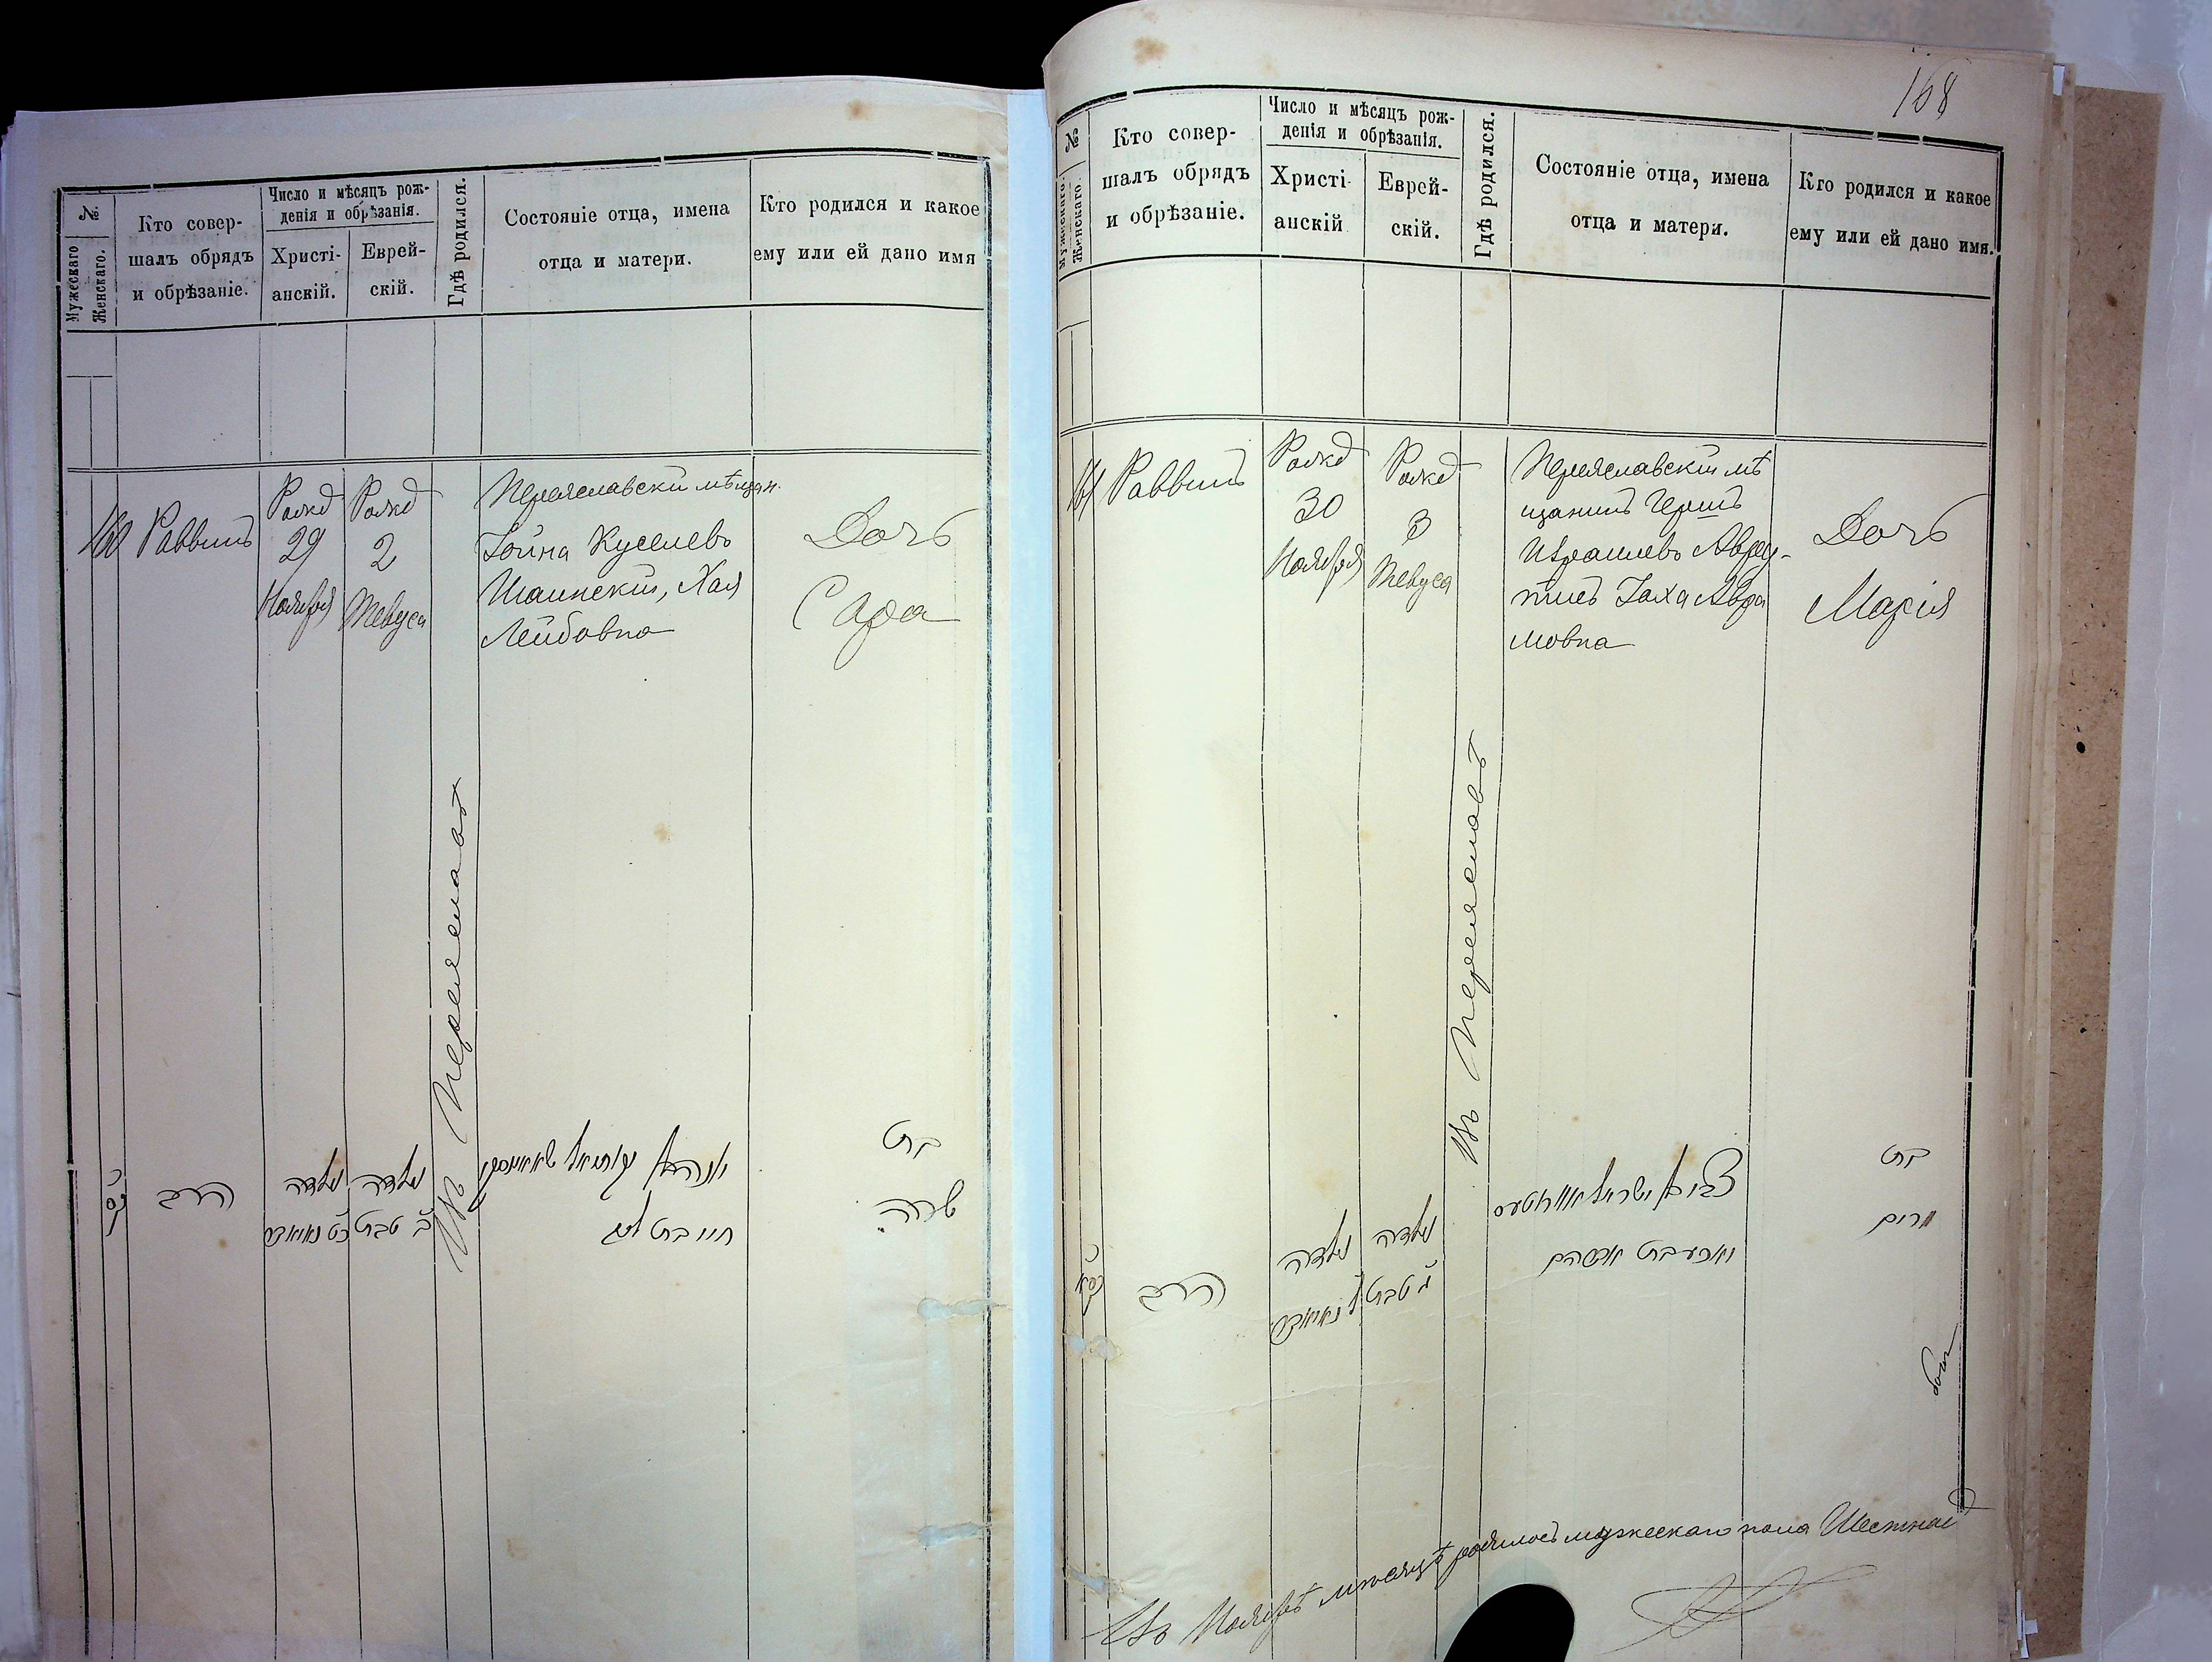 №
Мужескаго
Женскаго.
Кто совер-
шалъ обрядъ
и обрѣзаніе.
Число и мѣсяцъ рож-
денія и обрѣзанія.
Христі-
анскій.
Еврей-
скій.
Гдѣ родился.
Состояніе отца, имена
отца и матери.
Кто родился и какое
ему или ей дано имя
160
Раввинъ
Рожд
29
Ноября
Рожд
2
Тевуса
Въ Переяславѣ
Переяславскій мѣщан.
Іойна Куселевъ
Хая
Лейбовна
Дочь
Сара
הרב
נולדה
נולדה
ב טבת
חיי בת
בת
שרה
168
№
Мужескаго.
Женскаго.
Кто совер-
шалъ обрядъ
и обрѣзаніе.
Число и мѣсяцъ рож-
денія и обрѣзанія.
Христі-
анскій
Еврей-
скій.
Гдѣ родился.
Состояніе отца, имена
отца и матери.
Кто родился и какое
ему или ей дано имя.
161
Раввинъ
Рожд
30
Ноября
Рожд
3
Тевуса
Въ Переяславѣ
Переяславскій мѣ
щанинъ Гершъ
Израилевъ
Авра
мовна
Дочь
Марія
הרב
נולדה
נולדה
ג טבת
בת
מרים
Въ Ноябрѣ мѣсяцѣ родилось мужескаго пола Шестнад